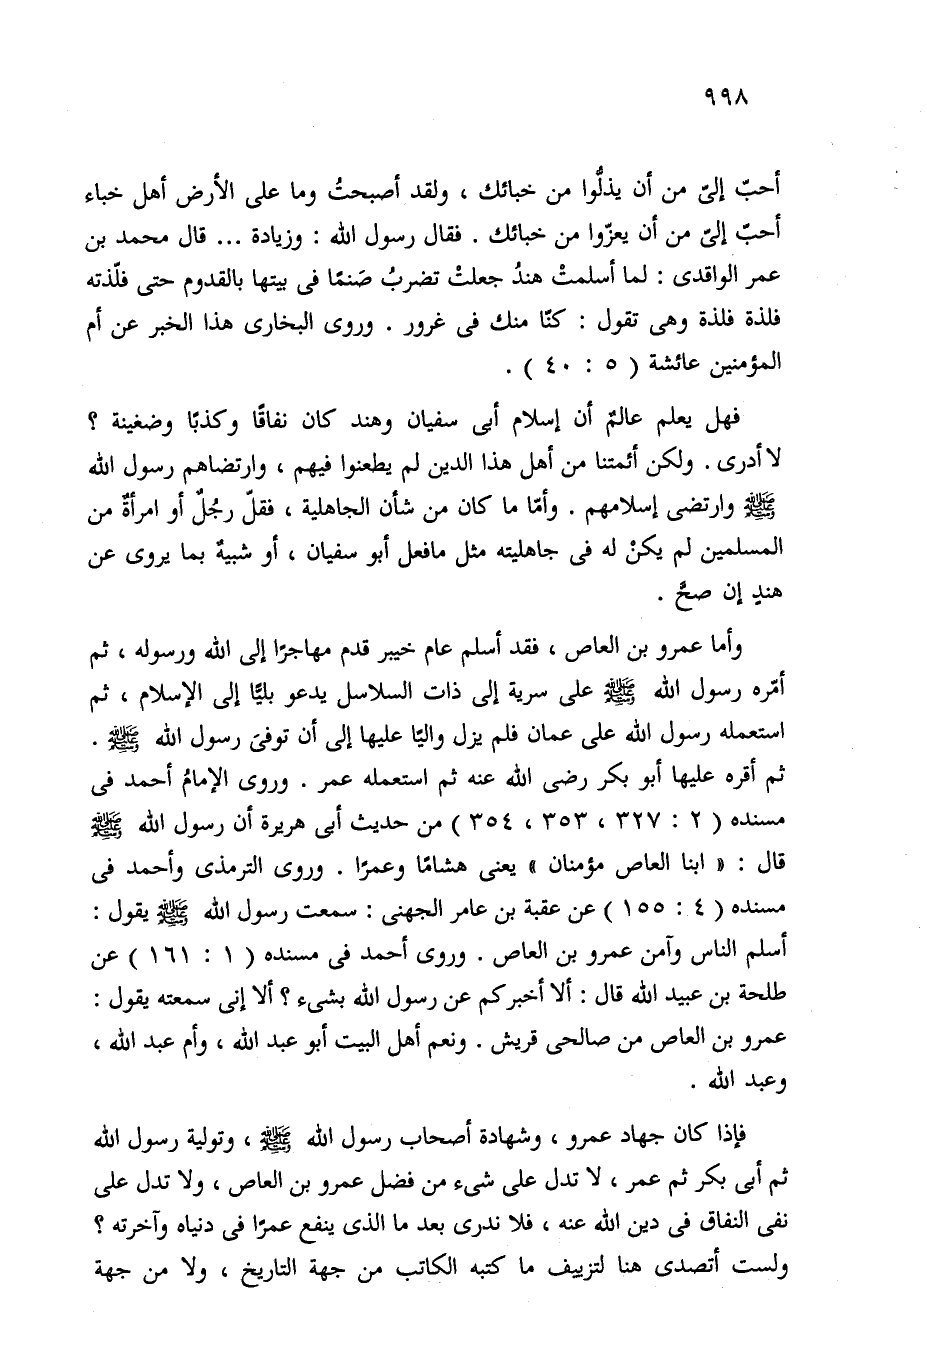 ٩٩٨
أحبّ إلىّ من أن يذلُّوا من خبائك ، ولقد أصبحتُ وما على الأرض أهل خباء
أحبّ إلىّ من أن يعزّوا من خبائك . فقال رسول الله : وزيادة ... قال محمد بن
عمر الواقدى : لما أسلمتْ هندُ جعلتْ تضربُ صَنمًا فى بيتها بالقدوم حتى فلّذته
فلذة فلذة وهى تقول : كنّا منك فى غرور . وروى البخارى هذا الخبر عن أم
المؤمنين عائشة ( ٥ : ٤٠ ) .
فهل يعلم عالمٌ أن إسلام أبى سفيان وهند كان نفاقًا وكذبًا وضغينة ؟
لا أدرى . ولكن أئمتنا من أهل هذا الدين لم يطعنوا فيهم ، وارتضاهم رسول الله
ﷺ وارتضى إسلامهم . وأمّا ما كان من شأن الجاهلية ، فقلّ رجُلٌ أو امرأةٌ من
المسلمين لم يكنْ له فى جاهليته مثل مافعل أبو سفيان ، أو شبيهٌ بما يروى عن
هندٍ إن صحَّ .
وأما عمرو بن العاص ، فقد أسلم عام خيبر قدم مهاجرًا إلى الله ورسوله ، ثم
أمّره رسول الله ﷺ على سرية إلى ذات السلاسل يدعو بليًّا إلى الإسلام ، ثم
استعمله رسول الله على عمان فلم يزل واليًا عليها إلى أن توفىَ رسول الله ﷺ .
ثم أقره عليها أبو بكر رضى الله عنه ثم استعمله عمر . وروى الإمامُ أحمد فى
مسنده ( ٢ : ٣٢٧ ، ٣٥٣ ، ٣٥٤ ) من حديث أبى هريرة أن رسول الله ﷺ
قال : « ابنا العاص مؤمنان » يعنى هشامًا وعمرًا . وروى الترمذى وأحمد فى
مسنده ( ٤ : ١٥٥ ) عن عقبة بن عامر الجهنى : سمعت رسول الله ﷺ يقول :
أسلم الناس وآمن عمرو بن العاص . وروى أحمد فى مسنده ( ١ : ١٦١ ) عن
طلحة بن عبيد الله قال : ألا أخبركم عن رسول الله بشىء ؟ ألا إنى سمعته يقول :
عمرو بن العاص من صالحى قريش . ونعم أهل البيت أبو عبد الله ، وأم عبد الله ،
وعبد الله .
فإذا كان جهاد عمرو ، وشهادة أصحاب رسول الله ﷺ ، وتولية رسول الله
ثم أبى بكر ثم عمر ، لا تدل على شىء من فضل عمرو بن العاص ، ولا تدل على
نفى النفاق فى دين الله عنه ، فلا ندرى بعد ما الذى ينفع عمرًا فى دنياه وآخرته ؟
ولست أتصدى هنا لتزييف ما كتبه الكاتب من جهة التاريخ ، ولا من جهة